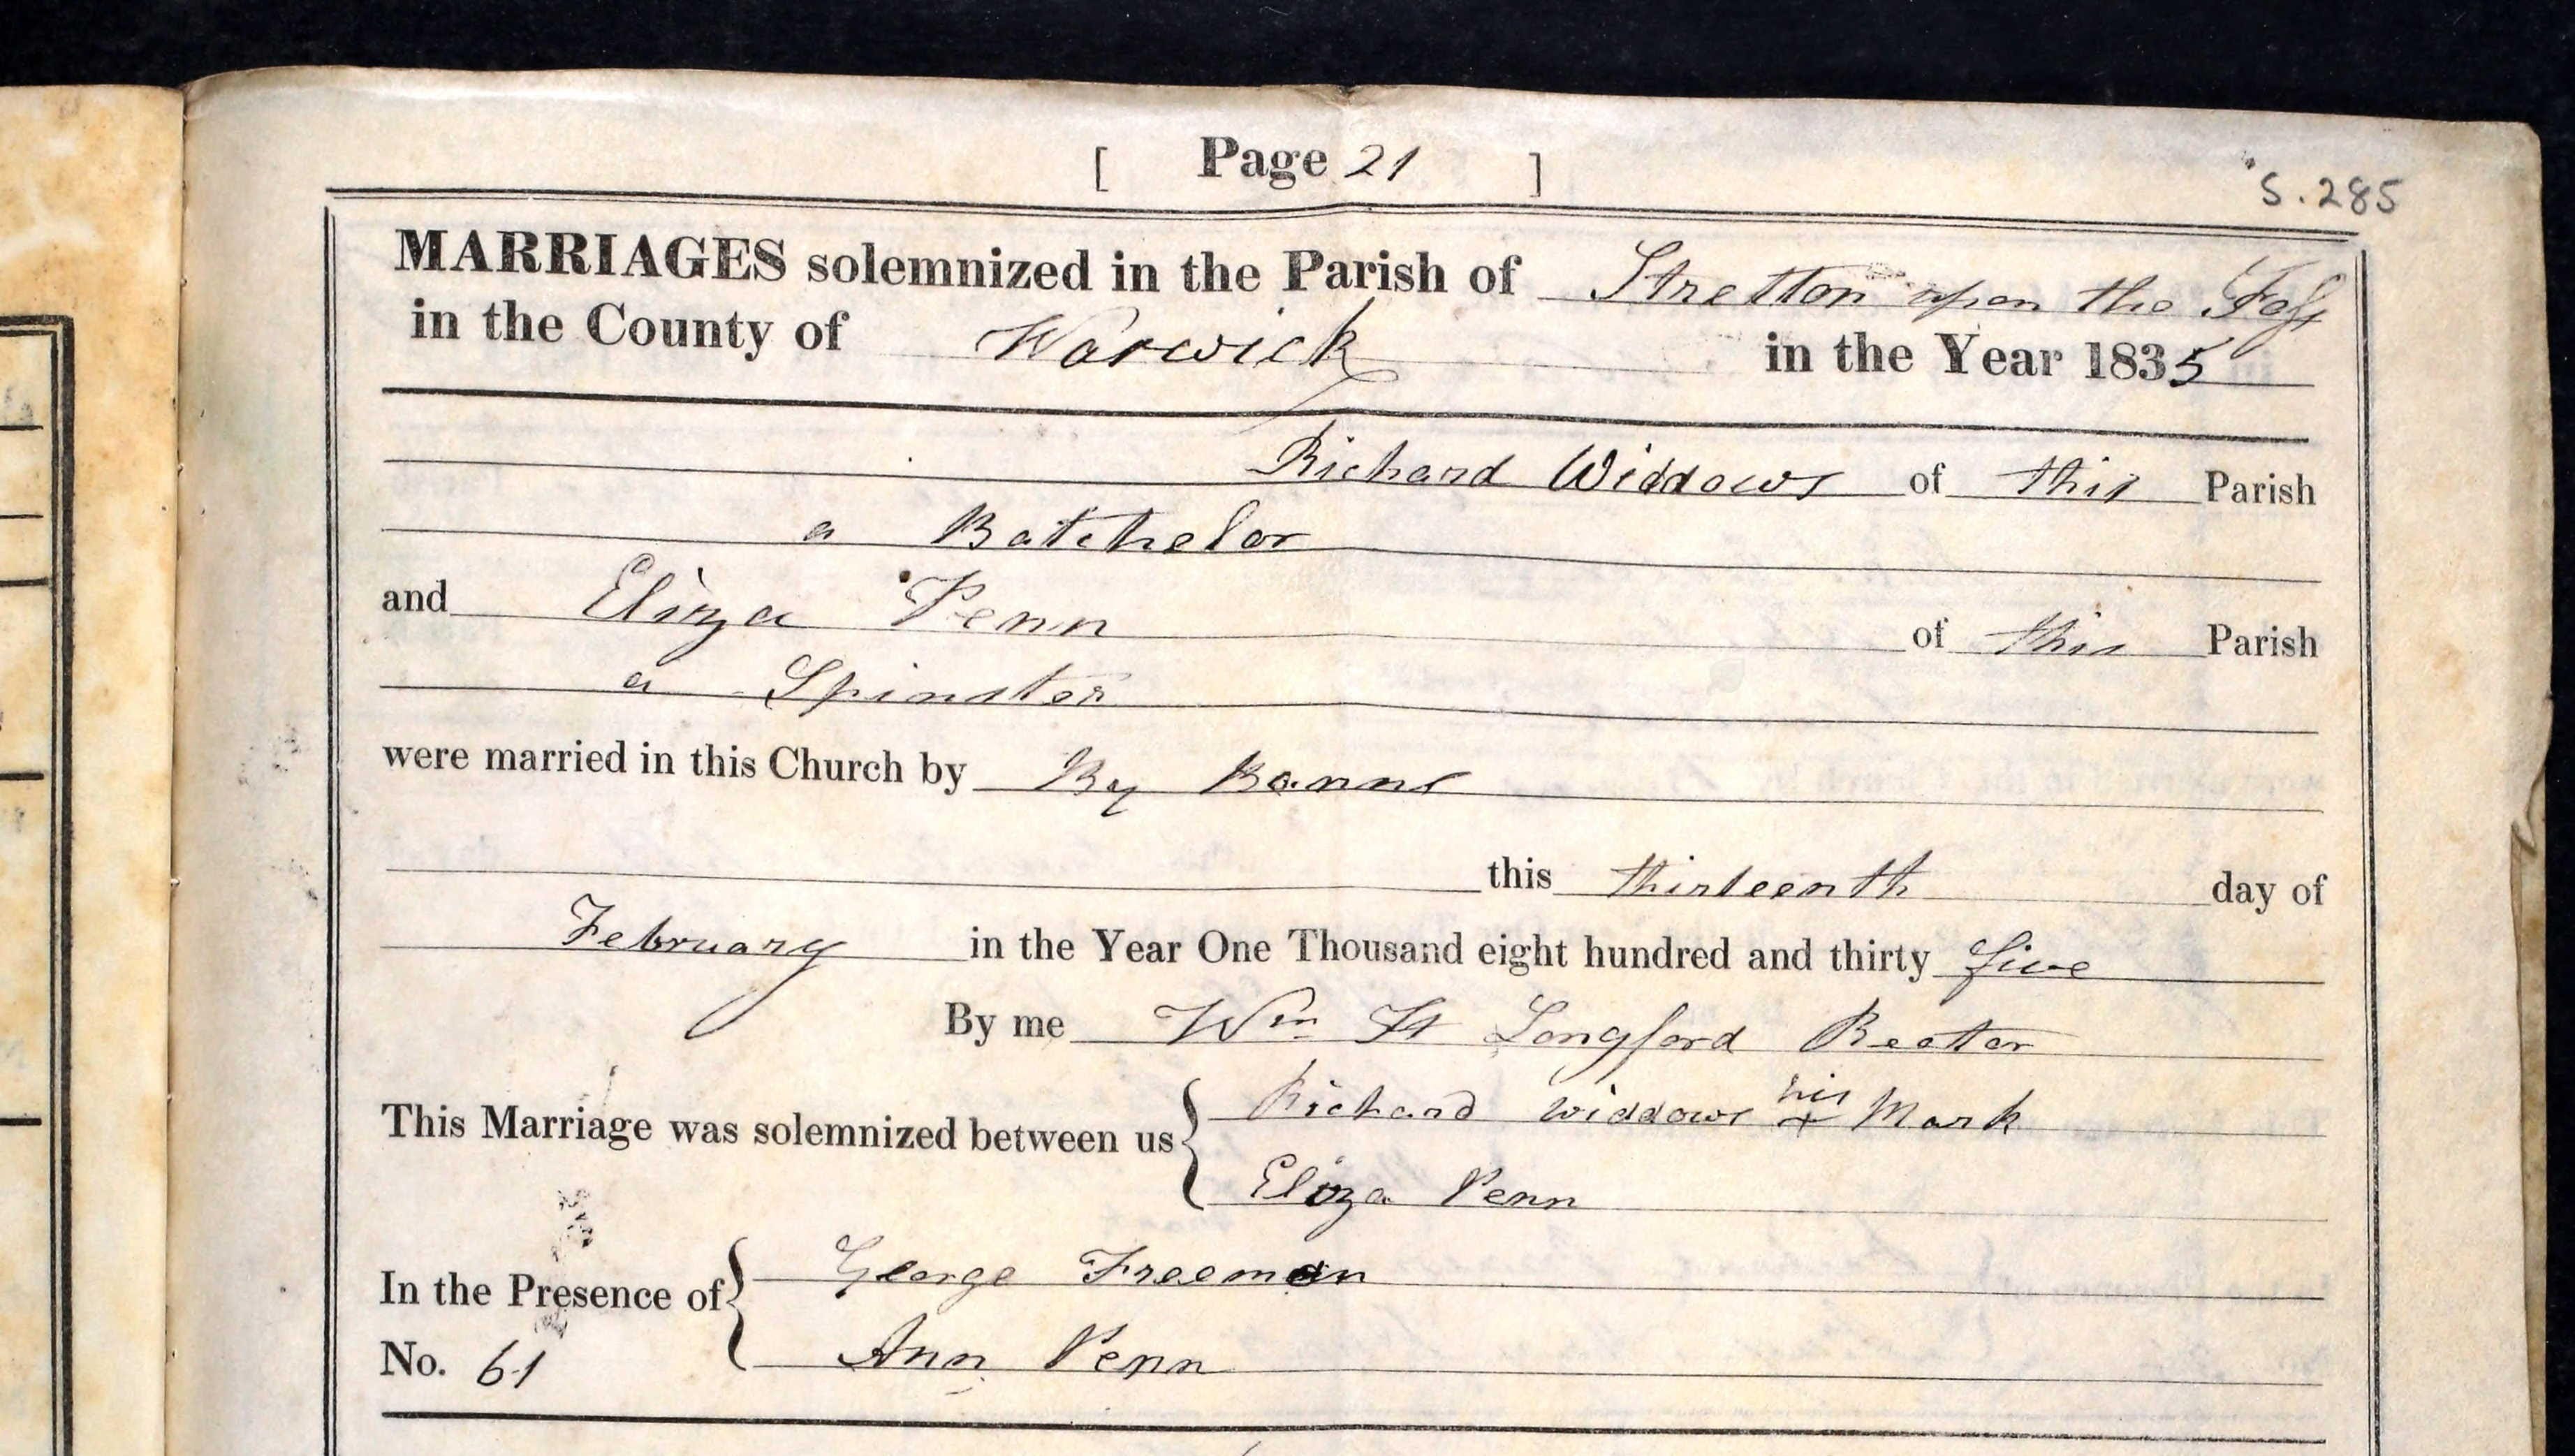 [ Page 21 ]
S. 285
MARRIAGES solemnized in the Parish of Stretton upon the Foss
in the County of Warwick in the Year 1835
Richard Widdows of this Parish
a Batchelor
and Eliza Penn of this Parish
a Spinster
were married in this Church by By Banns
this thirteenth day of
February in the Year One Thousand eight hundred and thirty five
By me Wm H Longford Rector
This Marriage was solemnized between us { Richard Widdows his x Mark
Eliza Penn
In the Presence of { George Freeman
Ann Penn
No. 61